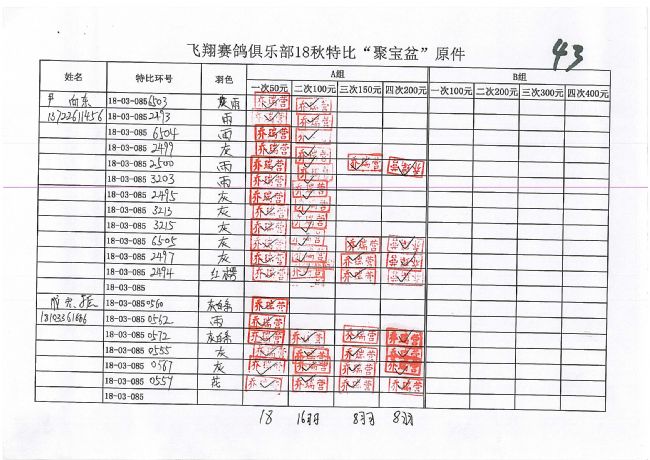 飞翔赛鸽俱乐部18秋特比“聚宝盆”原件
43
姓名 特比环号 羽色 A组 B组
一次50元 二次100元 三次150元 四次200元 一次100元 二次200元 三次300元 四次400元
向东 18-03-085 6503 雨 乔瑞营
18722611456 18-03-085 2493 雨 乔瑞营
18-03-085 6504 雨 乔瑞营
18-03-085 2499 灰 乔瑞营
18-03-085 2500 雨 乔瑞营 乔瑞营
18-03-085 3203 雨 乔瑞营
18-03-085 2495 灰 乔瑞营
18-03-085 3213 灰 乔瑞营
18-03-085 3215 灰 乔瑞营
18-03-085 6505 灰 乔瑞营 乔瑞营
18-03-085 2497 灰 乔瑞营 乔瑞营
18-03-085 2494 红楞 乔瑞营 乔瑞营
18-03-085
18-03-085 0560 灰白条 乔瑞营
18-03-085 0562 雨 乔瑞营
18-03-085 0572 灰白条 乔瑞营 乔瑞营 乔瑞营 乔瑞营
18-03-085 0555 灰 乔瑞营 乔瑞营 乔瑞营 乔瑞营
18-03-085 0567 灰 乔瑞营 乔瑞营 乔瑞营 乔瑞营
18-03-085 0557 花 乔瑞营 乔瑞营 乔瑞营 乔瑞营
18-03-085
18 16羽 8羽 8羽